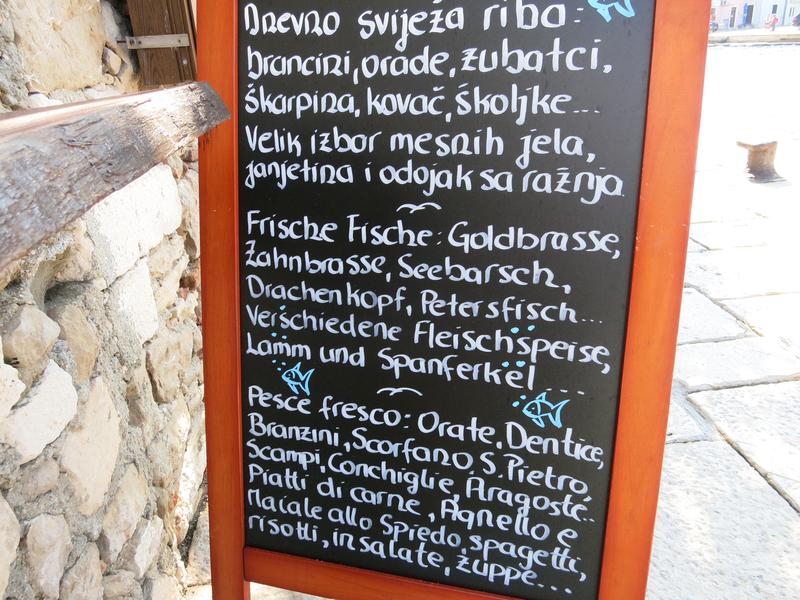 Dnevno svježa riba:
brancini, orade, zubatci,
škarpina, kovač, školjke...
Velik izbor mesnih jela,
janjetina i odojak sa ražnja
Frische Fische: Goldbrasse,
Zahnbrasse, Seebarsch,
Drachenkopf, Petersfisch...
Verschiedene Fleischspeise,
Lamm und Spanferkel....
Pesce fresco: Orate, Dentice,
Branzini, Scorfano S. Pietro,
Scampi, Conchiglie, Aragoste..
Piatti di carne, Agnello e
Maiale allo Spiedo, spagetti,
risotti, insalate, zuppe...